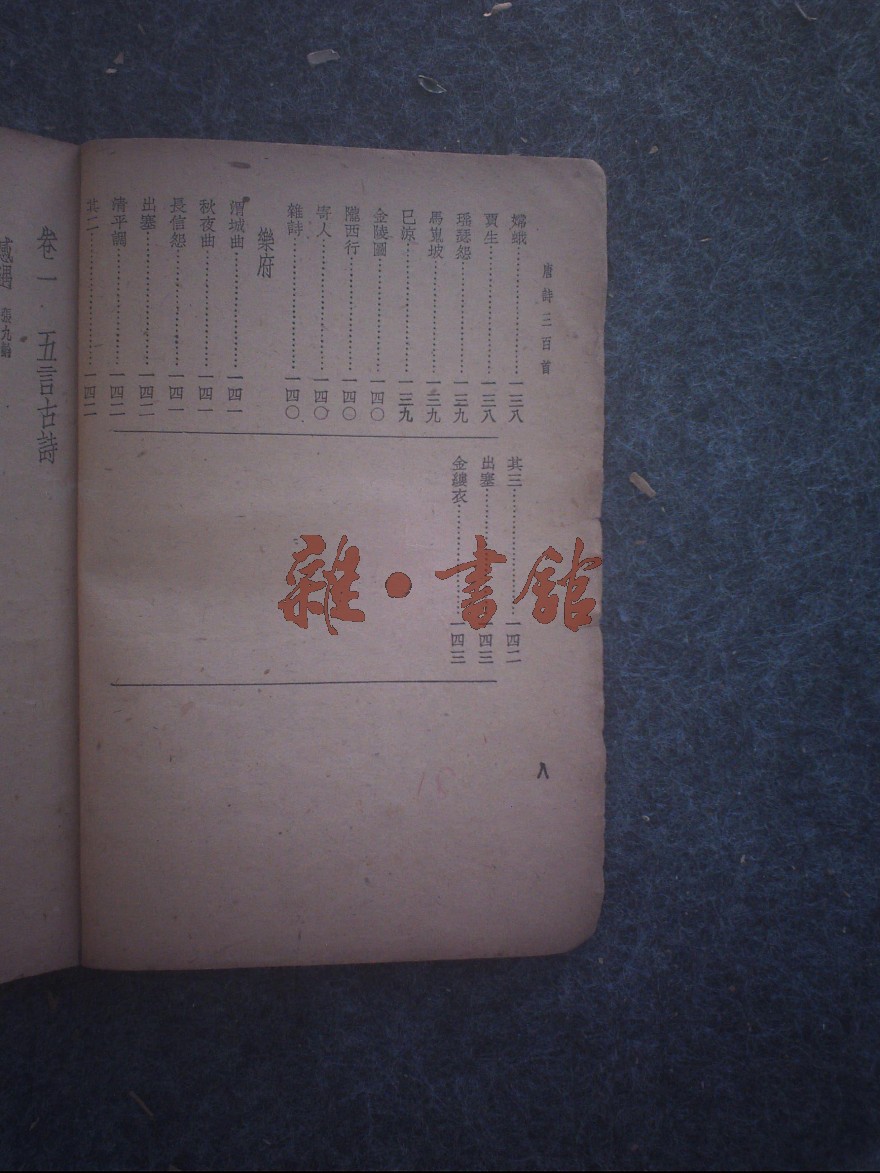 唐詩三百首
嫦娥…………一三八
賈生…………一三八
瑤瑟怨…………一三九
馬嵬坡…………一三九
已涼…………一三九
金陵圖…………一四〇
隴西行…………一四〇
寄人…………一四〇
雜詩…………一四〇
樂府
渭城曲…………一四一
秋夜曲…………一四一
長信怨…………一四一
出塞…………一四二
清平調…………一四二
其二…………一四二
其三…………一四二
出塞…………一四三
金縷衣…………一四三
八
卷一 五言古詩
感遇 張九齡
雜·書館